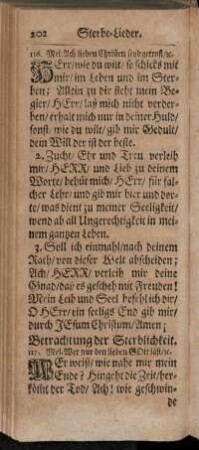 202 Sterbe-Lieder.
116. Mel. Ach lieben Christen seyd getrost/ꝛc.
HErr/wie du wilt/ so schicks mit
mir/im Leben und im Ster-
ben; Allein zu dir steht mein Be-
gier/ HErr/laß mich nicht verder-
ben/erhalt mich nur in deiner Huld/
sonst/ wie du wilt/gib mir Gedult/
dein Will der ist der beste.
2. Zucht/ Ehr und Treu verleih
mir/ HERR/ und Lieb zu deinem
Worte/ behüt mich/ HErr/ für fal-
scher Lehr/ und gib mir hier und dor-
te/ was dient zu meiner Seeligkeit/
wend ab all Ungerechtigkeit in mei-
nem gantzen Leben.
3. Soll ich einmahl/nach deinem
Rath/ von dieser Welt abscheiden;
Ach/ HERR/ verleih mir deine
Gnad/daß es gescheh mit Freuden!
Mein Leib und Seel befehl ich dir/
O HErr/ ein seeligs End gib mir/
durch JEsum Christum/ Amen;
Betrachtung der Sterblichkeit.
117. Mel. Wer nur den lieben GOtt läst/ꝛc.
WEr weiß/ wie nahe mir mein
Ende? Hingeht die Zeit/her-
kömt der Tod/ Ach! wie geschwin-
de